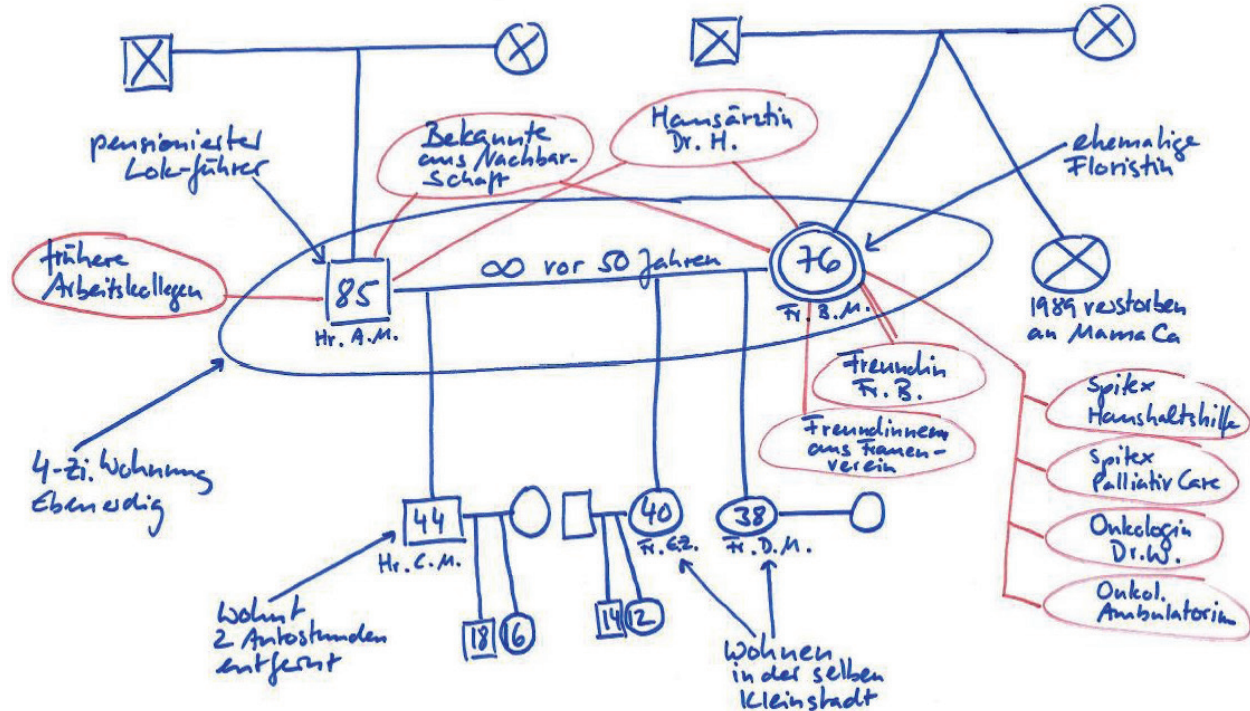 pensionierter
Lok-führer
Bekannte
aus Nachbar-
schaft
Hausärztin
Dr. H.
ehemalige
Floristin
frühere
Arbeitskollegen
85
Hr. A.M.
∞ vor 50 Jahren
76
Fr. B.M.
1989 verstorben
an Mama Ca
Freundin
Fr. B.
Freundinnen
aus Frauen-
verein
Spitex
Haushaltshilfe
Spitex
Palliativ Care
Onkologin
Dr. W.
Onkol.
Ambulatorium
4-Zi. Wohnung
Ebenerdig
44
Hr. C.M.
40
Fr. E.Z.
38
Fr. D.M.
18
16
14
12
Wohnt
2 Autostunden
entfernt
Wohnen
in der selben
Kleinstadt